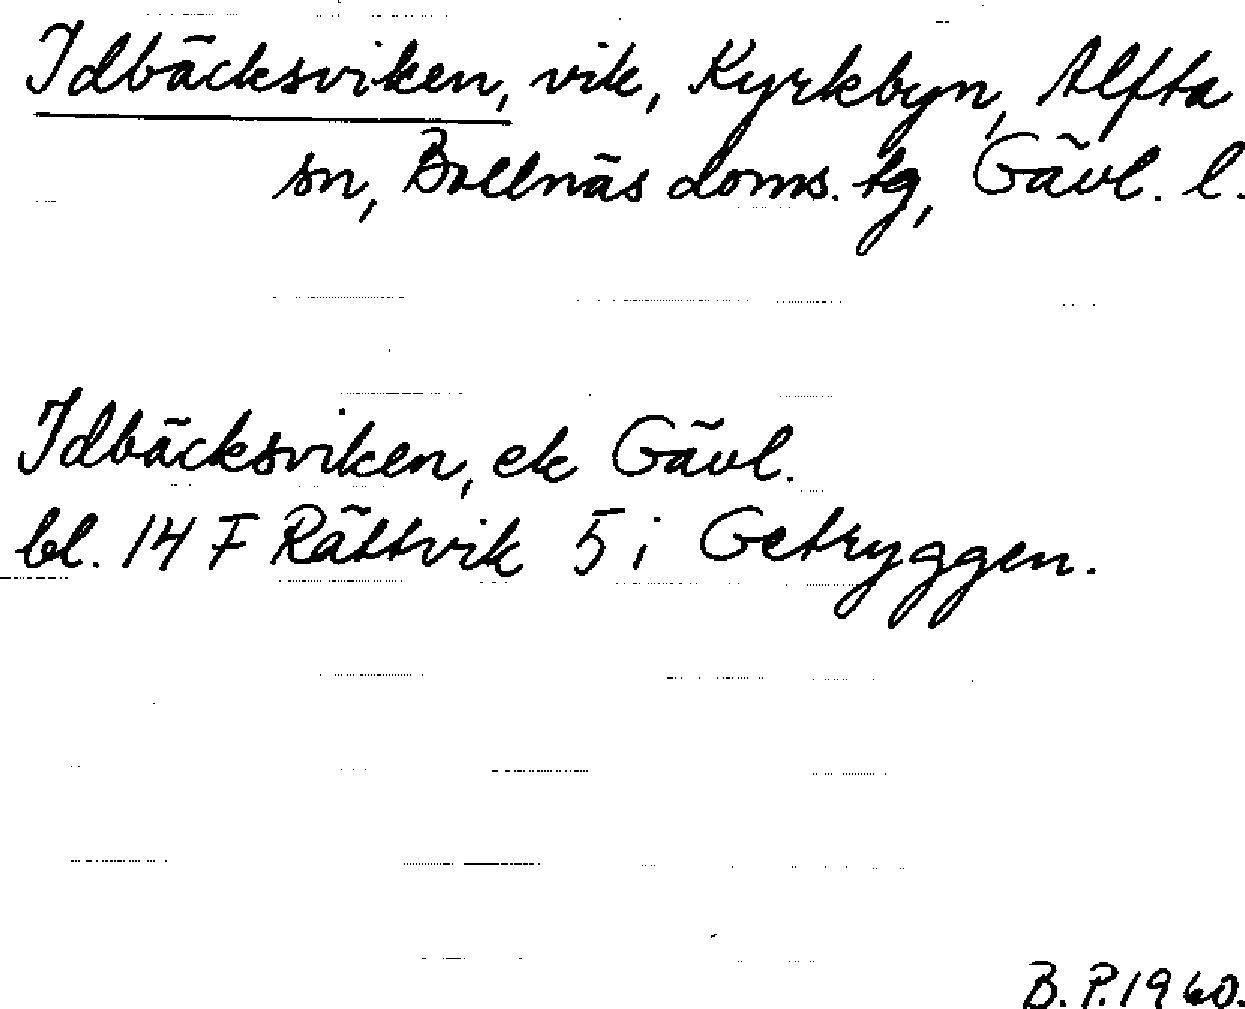 Idbäcksviken, vik, Kyrkbyn, Alfta
sn, Bollnäs doms. tg, Gävl. l.
Idbäcksviken, ek Gävl.
bl. 14 F Rättvik 5 i Getryggen.
B.P.1960.